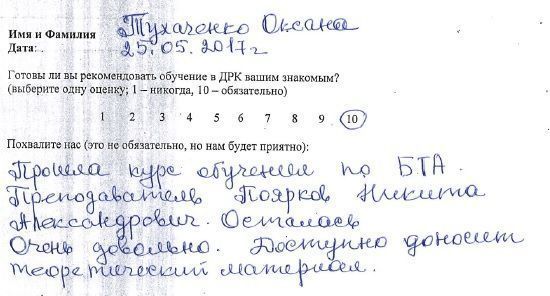 Имя и Фамилия Тухаченко Оксана
Дата: 25.05.2017г
Готовы ли вы рекомендовать обучение в ДРК вашим знакомым?
(выберите одну оценку; 1 – никогда, 10 – обязательно)
1 2 3 4 5 6 7 8 9 10
Похвалите нас (это не обязательно, но нам будет приятно):
Прошла курс обучения по БТА.
Преподаватель Поярков Никита
Александрович. Осталась
Очень довольно. Доступно доносит
теоретический материал.